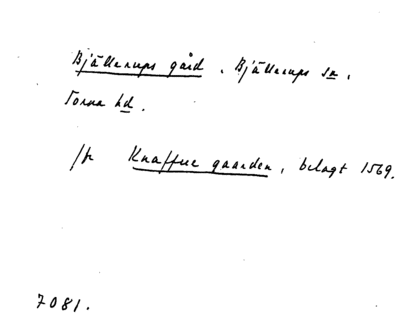 Bjällerups gård. Bjällerups sn.
Torna hd.
fr Knaffue gaarden, belagt 1569.
7081.